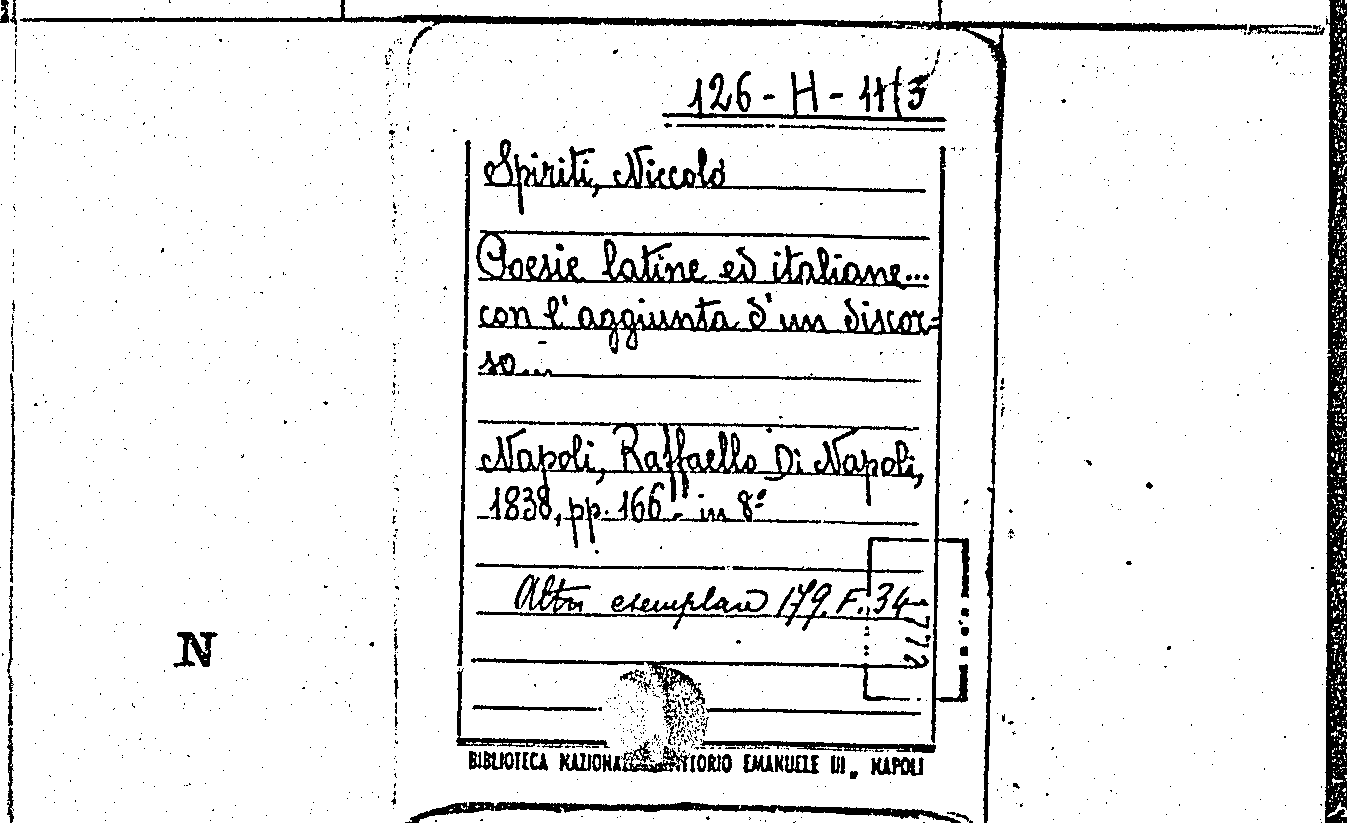 126 - H - 11/3
Spiriti, Niccolò
Poesie latine ed italiane...
con l'aggiunta d'un discor=
so...
Napoli, Raffaello Di Napoli,
1838, pp. 166 in 8º
Altro esemplare 179. F. 34
N
BIBLIOTECA NAZIONALE VITTORIO EMANUELE III, NAPOLI